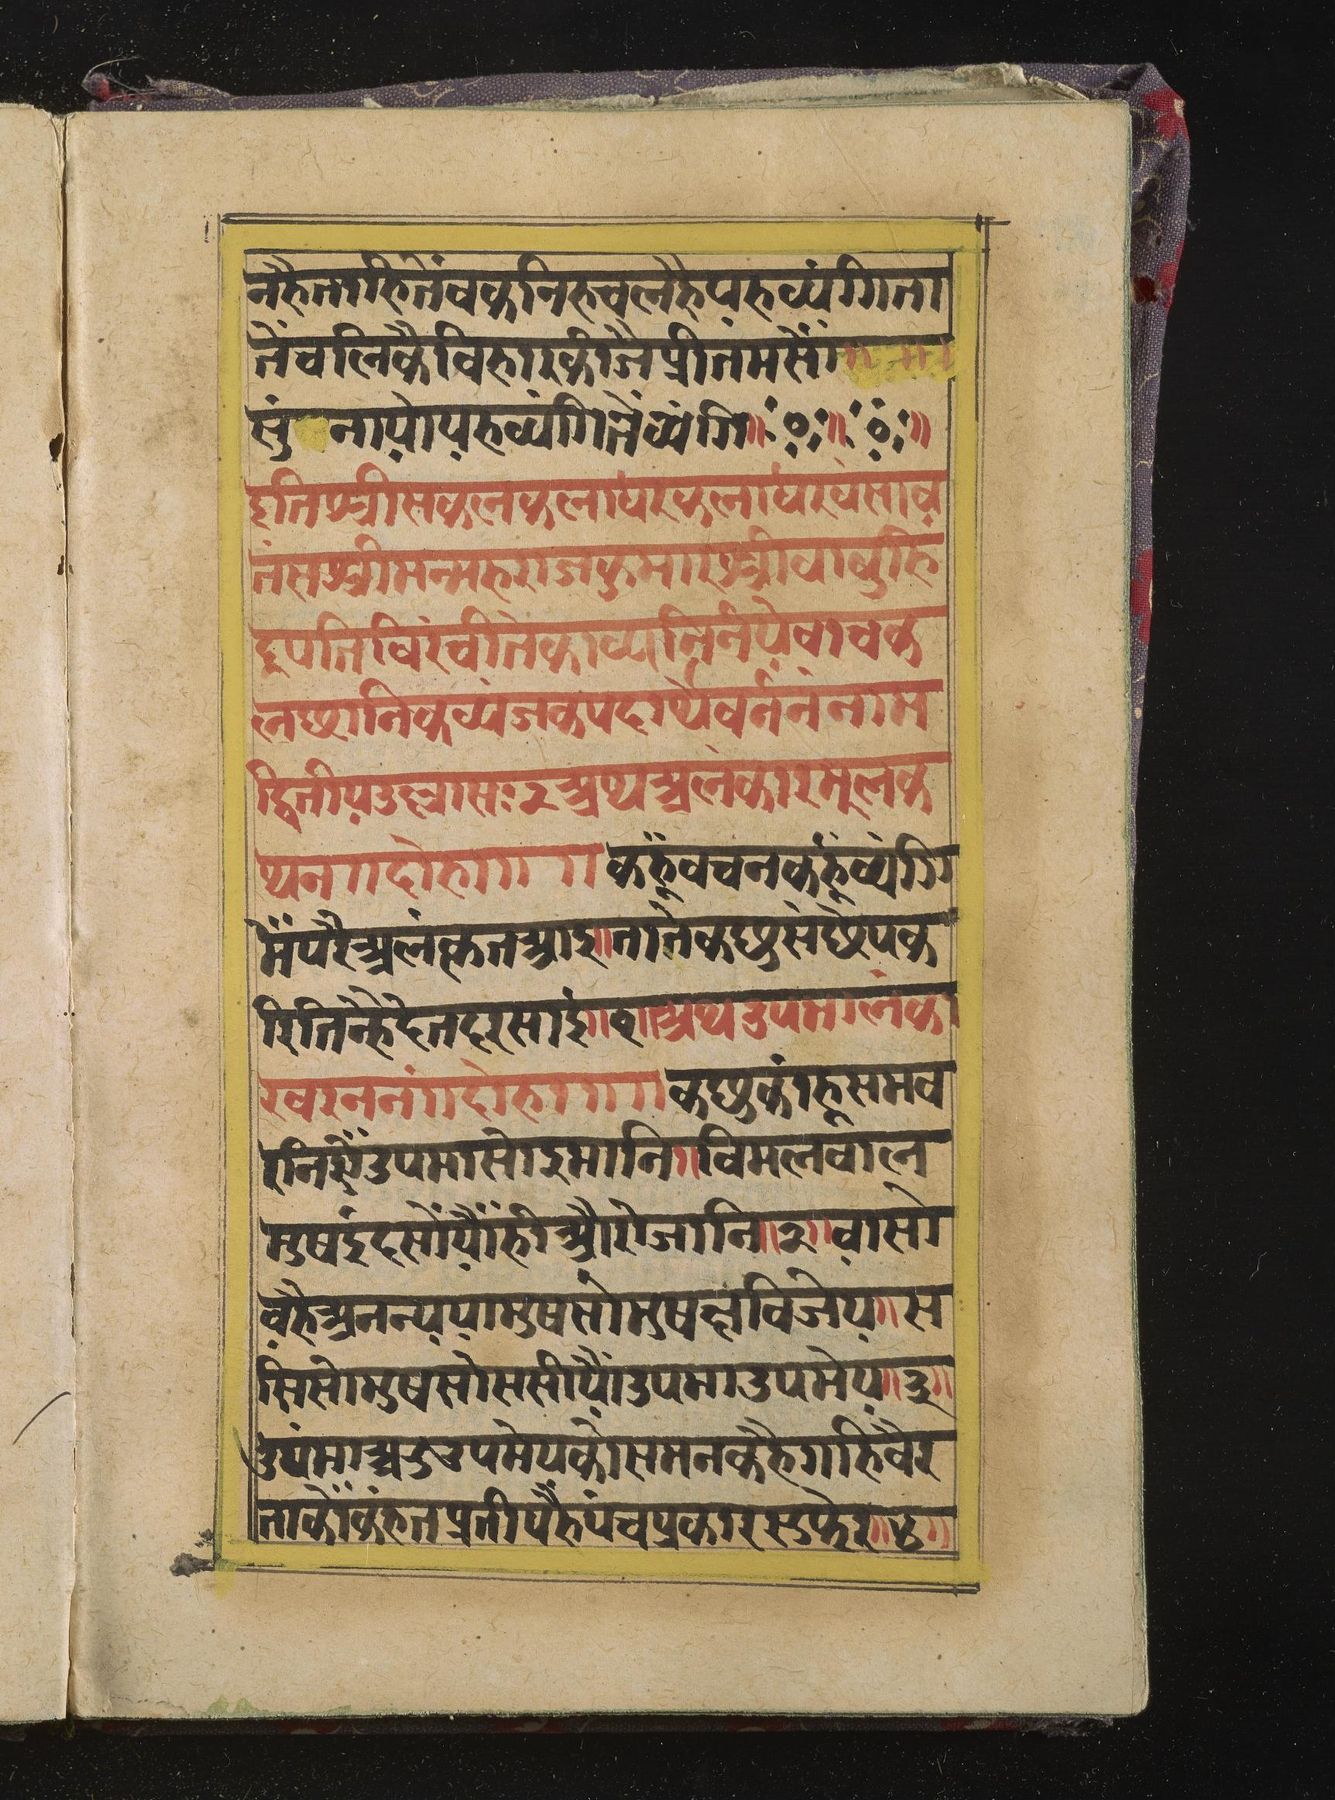 नहैनाहिनैंवकनिहचलहैयहव्यंगिता
तैंचलिकैविहारकीजैप्रीतंमसौं॥ ॥ ॥
सुं नायोयहव्यंगितेंव्यंगि॥ ॥ ॥
इतिश्रीसकलकलाधरकलाधरवंसाव
तंसश्रीमन्महराजकुमारश्रीवावुहिं
दूपतिविरंचीतेकाव्यनिर्नयेवाचक
लछानिकव्यंजकपदार्थवर्ननंनाम
द्वितीयउल्लासः२अथअलंकारमूलक
थन॥दोहा॥ ॥कहूंवचनकहूंव्यंगि
मैंपरैअलंकृतआइ॥तातेंकछुसंछेपक
रितिन्हैदेतदरसाइ॥१॥अथउपमालंका
रवरननं॥दोहा॥ ॥कछुकांहूसमव
रनियैंउपमासोइमानि॥विमलवाल
मुषइंदुसोंयौंहीऔरोजानि॥२॥वासो
वहैअनन्ययामुषसोंमुषछविजेय॥स
सिसोमुषसोससीयौंउपमाउपमेय॥३॥
उपंमाअउउपमेयकोसमनकहैगहिवैर
ताकोंकंहतप्रतीपहैंपंचप्रकारसुफेर॥४॥